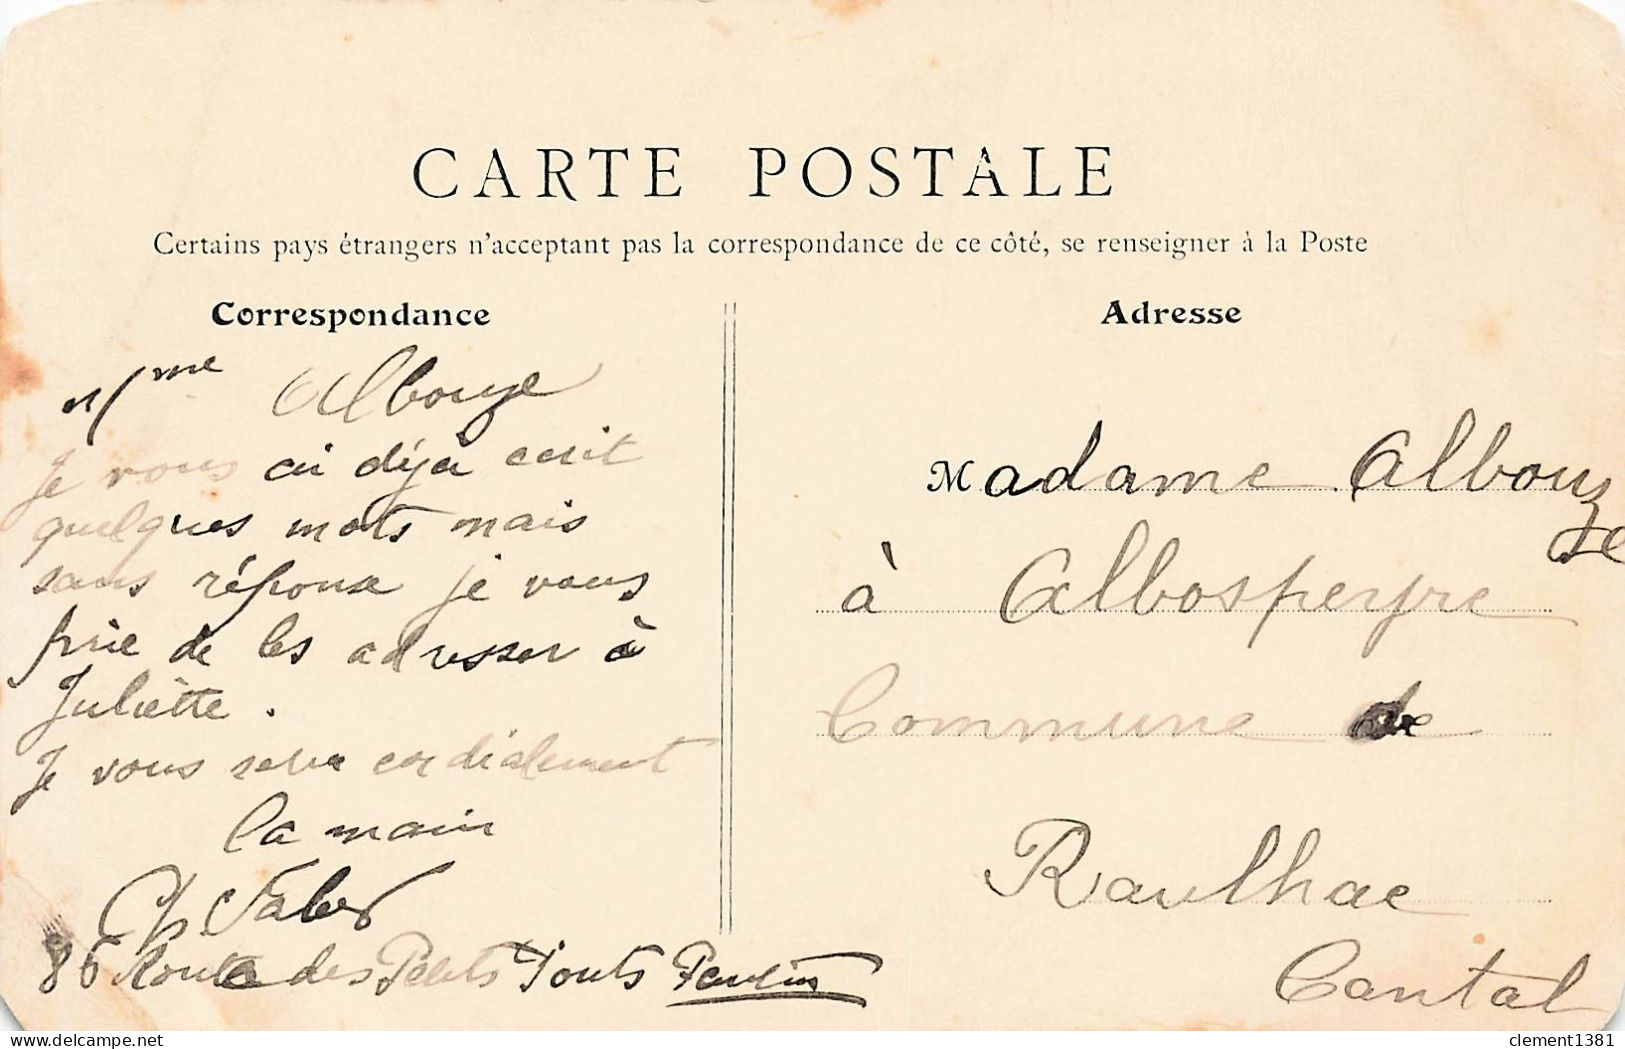 CARTE POSTALE
Certains pays étrangers n'acceptant pas la correspondance de ce côté, se renseigner à la Poste
Correspondance
Mme Albouze
Je vous ai déja ecrit
quelques mots mais
sans réponse je vous
prie de les adresser à
Juliette.
Je vous serre cordialement
la main
Ch Faber
86 Route des Petits Ponts Pantin
Adresse
Madame Albouze
à Albospeyre
Commune de
Raulhac
Cantal
clement1381